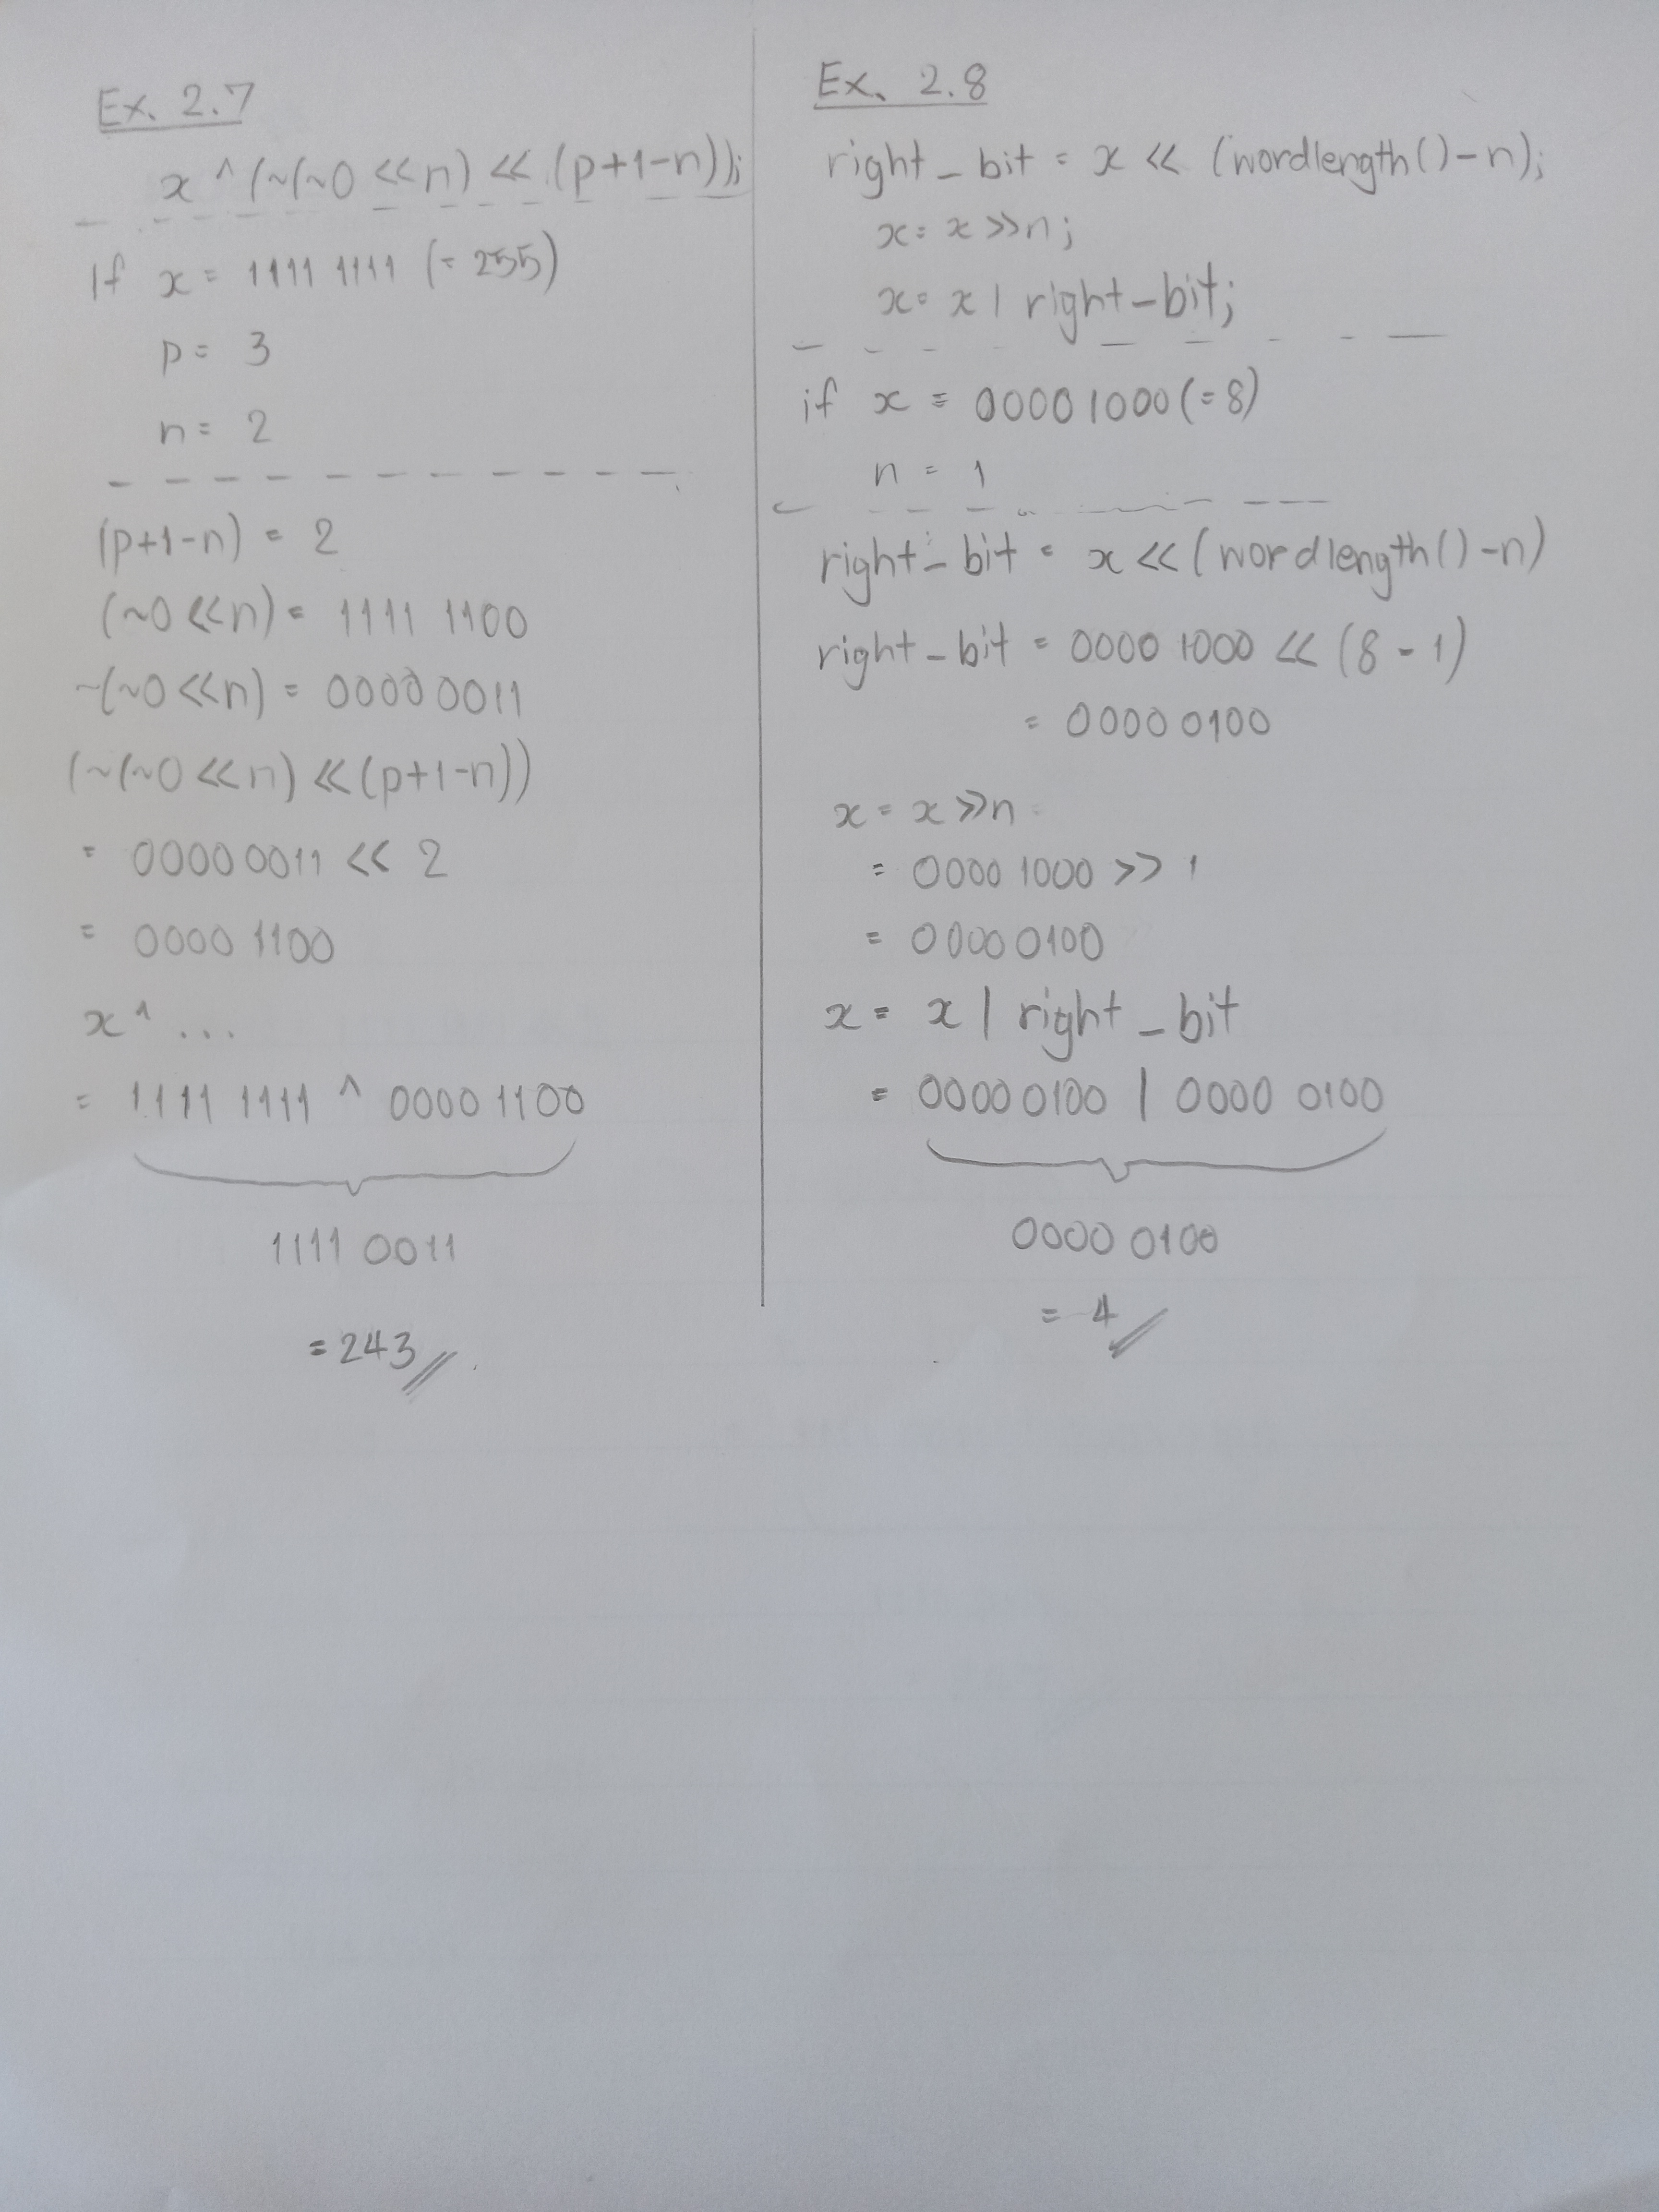 Ex. 2.7
x ^ (~(~0 << n) << (p+1-n));
If x = 1111 1111 (= 255)
p = 3
n = 2
(p+1-n) = 2
(~0 << n) = 1111 1100
~(~0 << n) = 0000 0011
(~(~0 << n) << (p+1-n))
= 0000 0011 << 2
= 0000 1100
x ^ ...
= 1111 1111 ^ 0000 1100
1111 0011
= 243
Ex. 2.8
right_bit = x << (wordlength()-n);
x = x >> n;
x = x | right_bit;
if x = 0000 1000 (= 8)
n = 1
right_bit = x << (wordlength()-n)
right_bit = 0000 1000 << (8 - 1)
= 0000 0100
x = x >> n
= 0000 1000 >> 1
= 0000 0100
x = x | right_bit
= 0000 0100 | 0000 0100
0000 0100
= 4